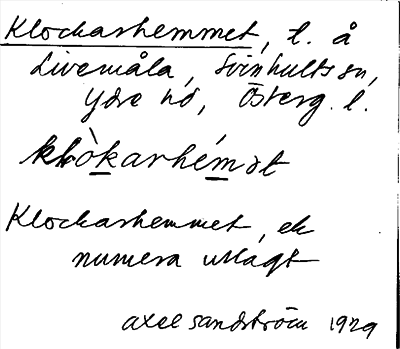 Klockarhemmet, t. å
Livemåla, Svinhults sn,
Ydre hd, Österg. l.
klò̱karhé̱mǝt
Klockarhemmet, ek
numera utlagt
Axel Sandström 1929